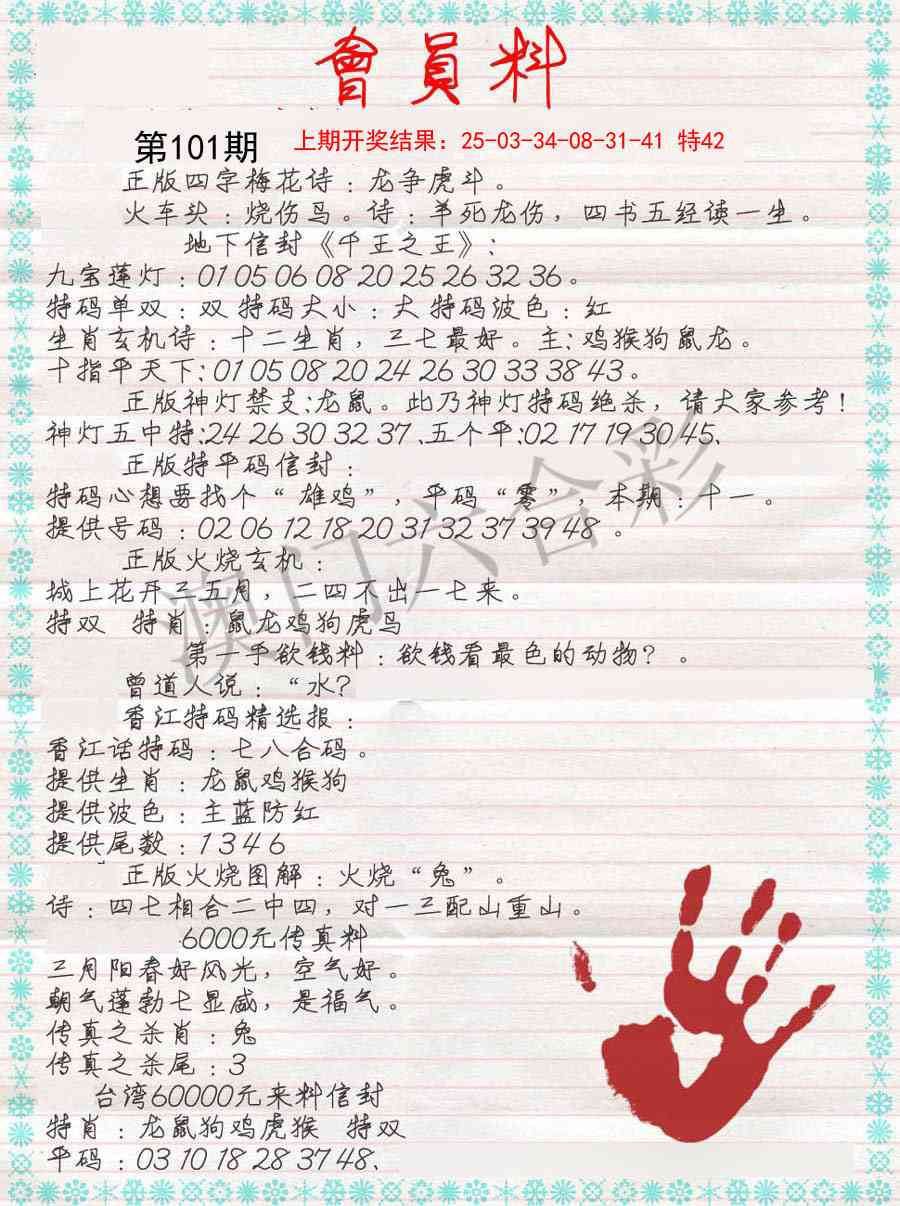 會員料
第101期 上期开奖结果：25-03-34-08-31-41 特42
正版四字梅花诗：龙争虎斗。
火车头：烧伤鸟。诗：羊死龙伤，四书五经读一生。
地下信封《千王之王》：
九宝莲灯：01 05 06 08 20 25 26 32 36。
特码单双：双 特码大小：大 特码波色：红
生肖玄机诗：十二生肖，三七最好。主：鸡猴狗鼠龙。
十指平天下：01 05 08 20 24 26 30 33 38 43。
正版神灯禁支：龙鼠。此乃神灯特码绝杀，请大家参考！
神灯五中特：24 26 30 32 37、五个平：02 17 19 30 45、
正版特平码信封：
特码心想要找个“雄鸡”，平码“零”，本期：十一。
提供号码：02 06 12 18 20 31 32 37 39 48 。
正版火烧玄机：
城上花开三五月，二四不出一七来。
特双 特肖：鼠龙鸡狗虎鸟
第一手欲钱料：欲钱看最色的动物？。
曾道人说：“水？
香江特码精选报：
香江话特码：七八合码。
提供生肖：龙鼠鸡猴狗
提供波色：主蓝防红
提供尾数：1 3 4 6
正版火烧图解：火烧“兔”。
诗：四七相合二中四，对一三配山重山。
6000元传真料
三月阳春好风光，空气好。
朝气蓬勃七显威，是福气。
传真之杀肖：兔
传真之杀尾：3
台湾60000元来料信封
特肖：龙鼠狗鸡虎猴 特双
平码：03 10 18 28 37 48、
澳门六合彩